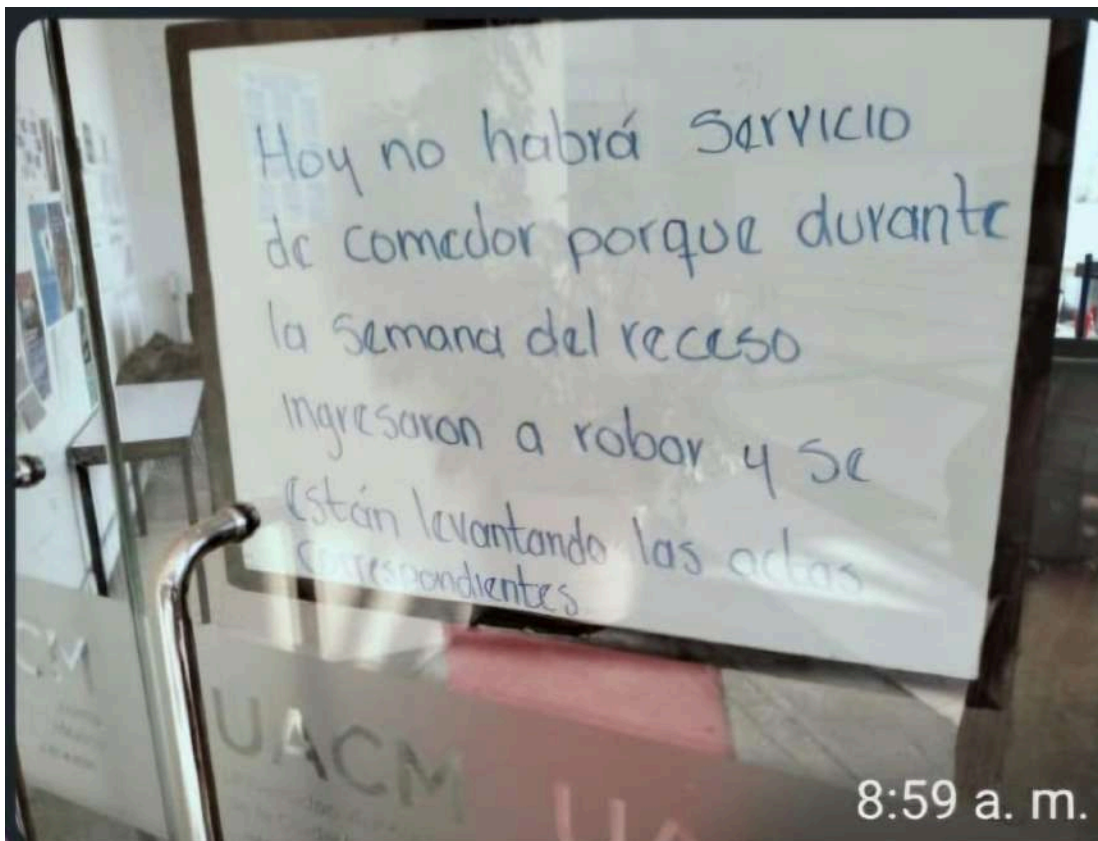 Hoy no habrá servicio
de comedor porque durante
la semana del receso
ingresaron a robar y se
están levantando las actas
correspondientes
CM
UACM
UA
8:59 a. m.